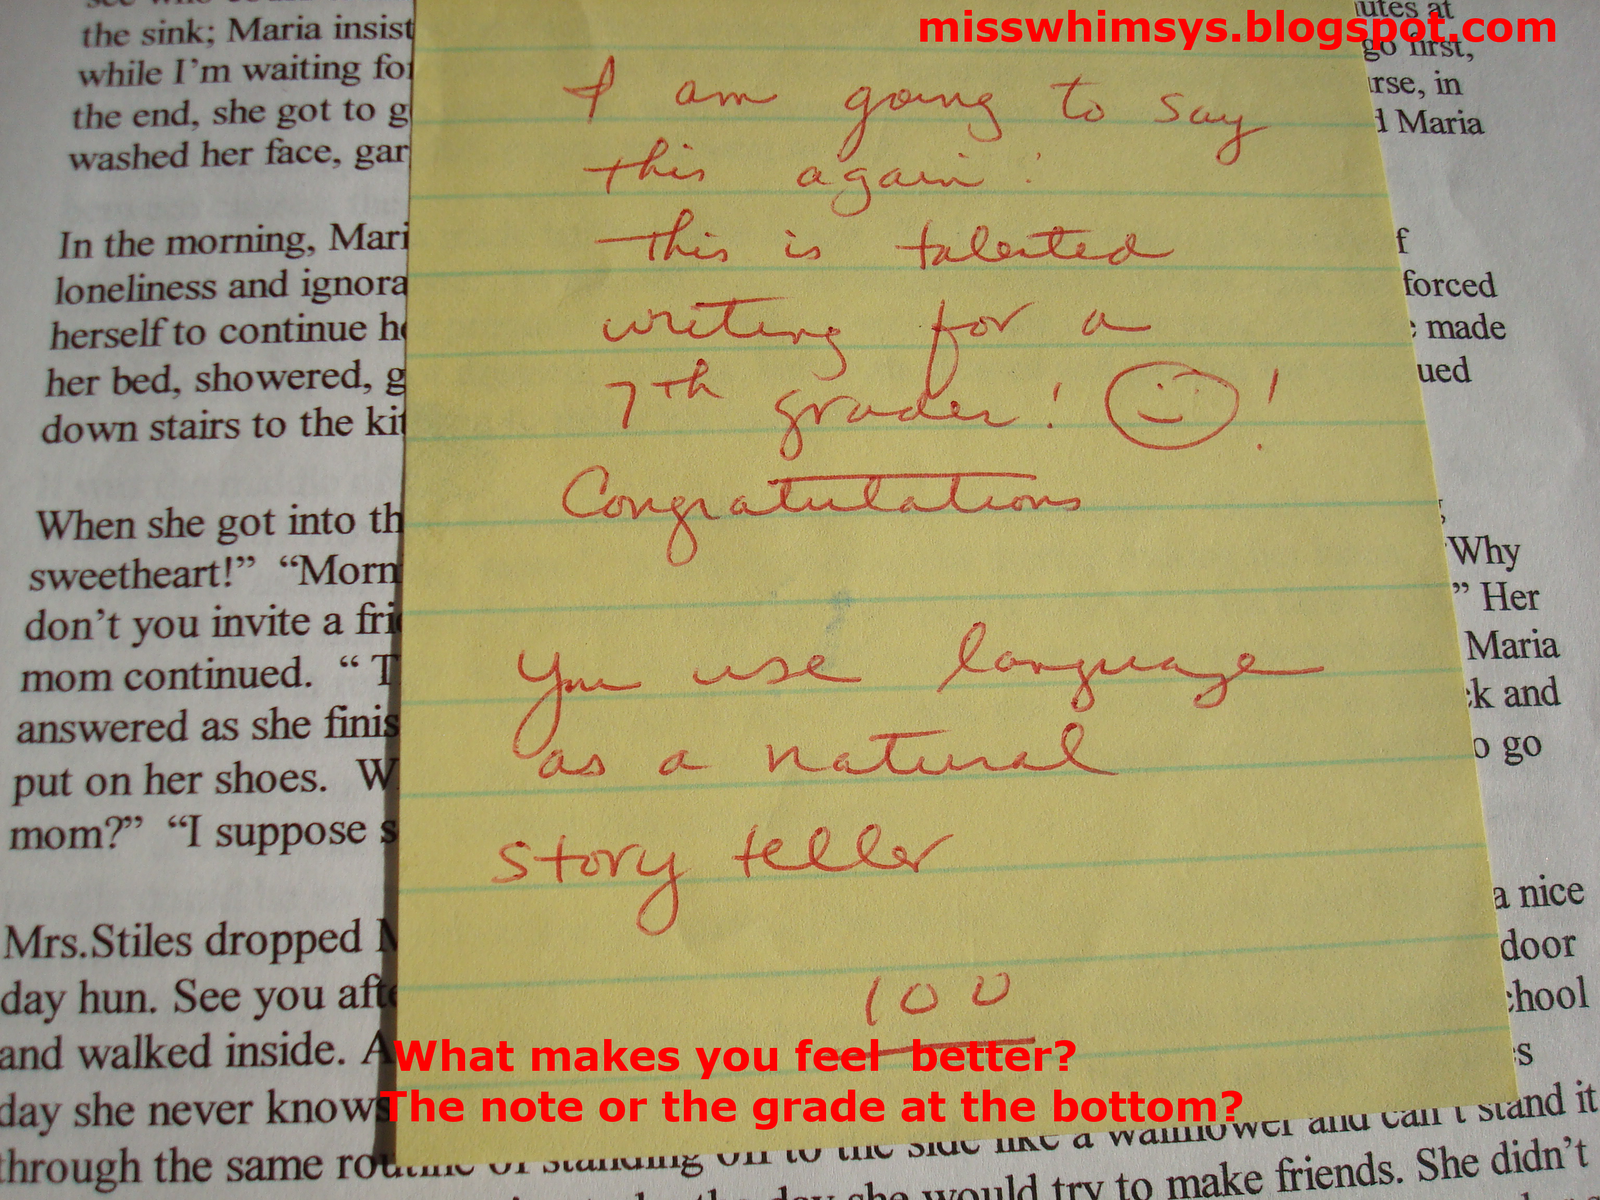 misswhimsys.blogspot.com
the sink; Maria insist
while I'm waiting for
the end, she got to g
washed her face, gar
utes at
go first,
rse, in
d Maria
In the morning, Mari
loneliness and ignora
herself to continue he
her bed, showered, g
down stairs to the kit
f
forced
made
ued
When she got into th
sweetheart!” “Morn
don't you invite a frie
mom continued. “ T
answered as she finis
put on her shoes. W
mom?” “I suppose s
Why
” Her
Maria
ck and
o go
Mrs.Stiles dropped M
day hun. See you afte
and walked inside. A
day she never knows
through the same routine of standing off to the side like a wallflower and can't stand it
a nice
door
chool
es
the day she would try to make friends. She didn't
I am going to say
this again:
This is talented
writing for a
7th grader! !
Congratulations
You use language
as a natural
story teller
100
What makes you feel better?
The note or the grade at the bottom?